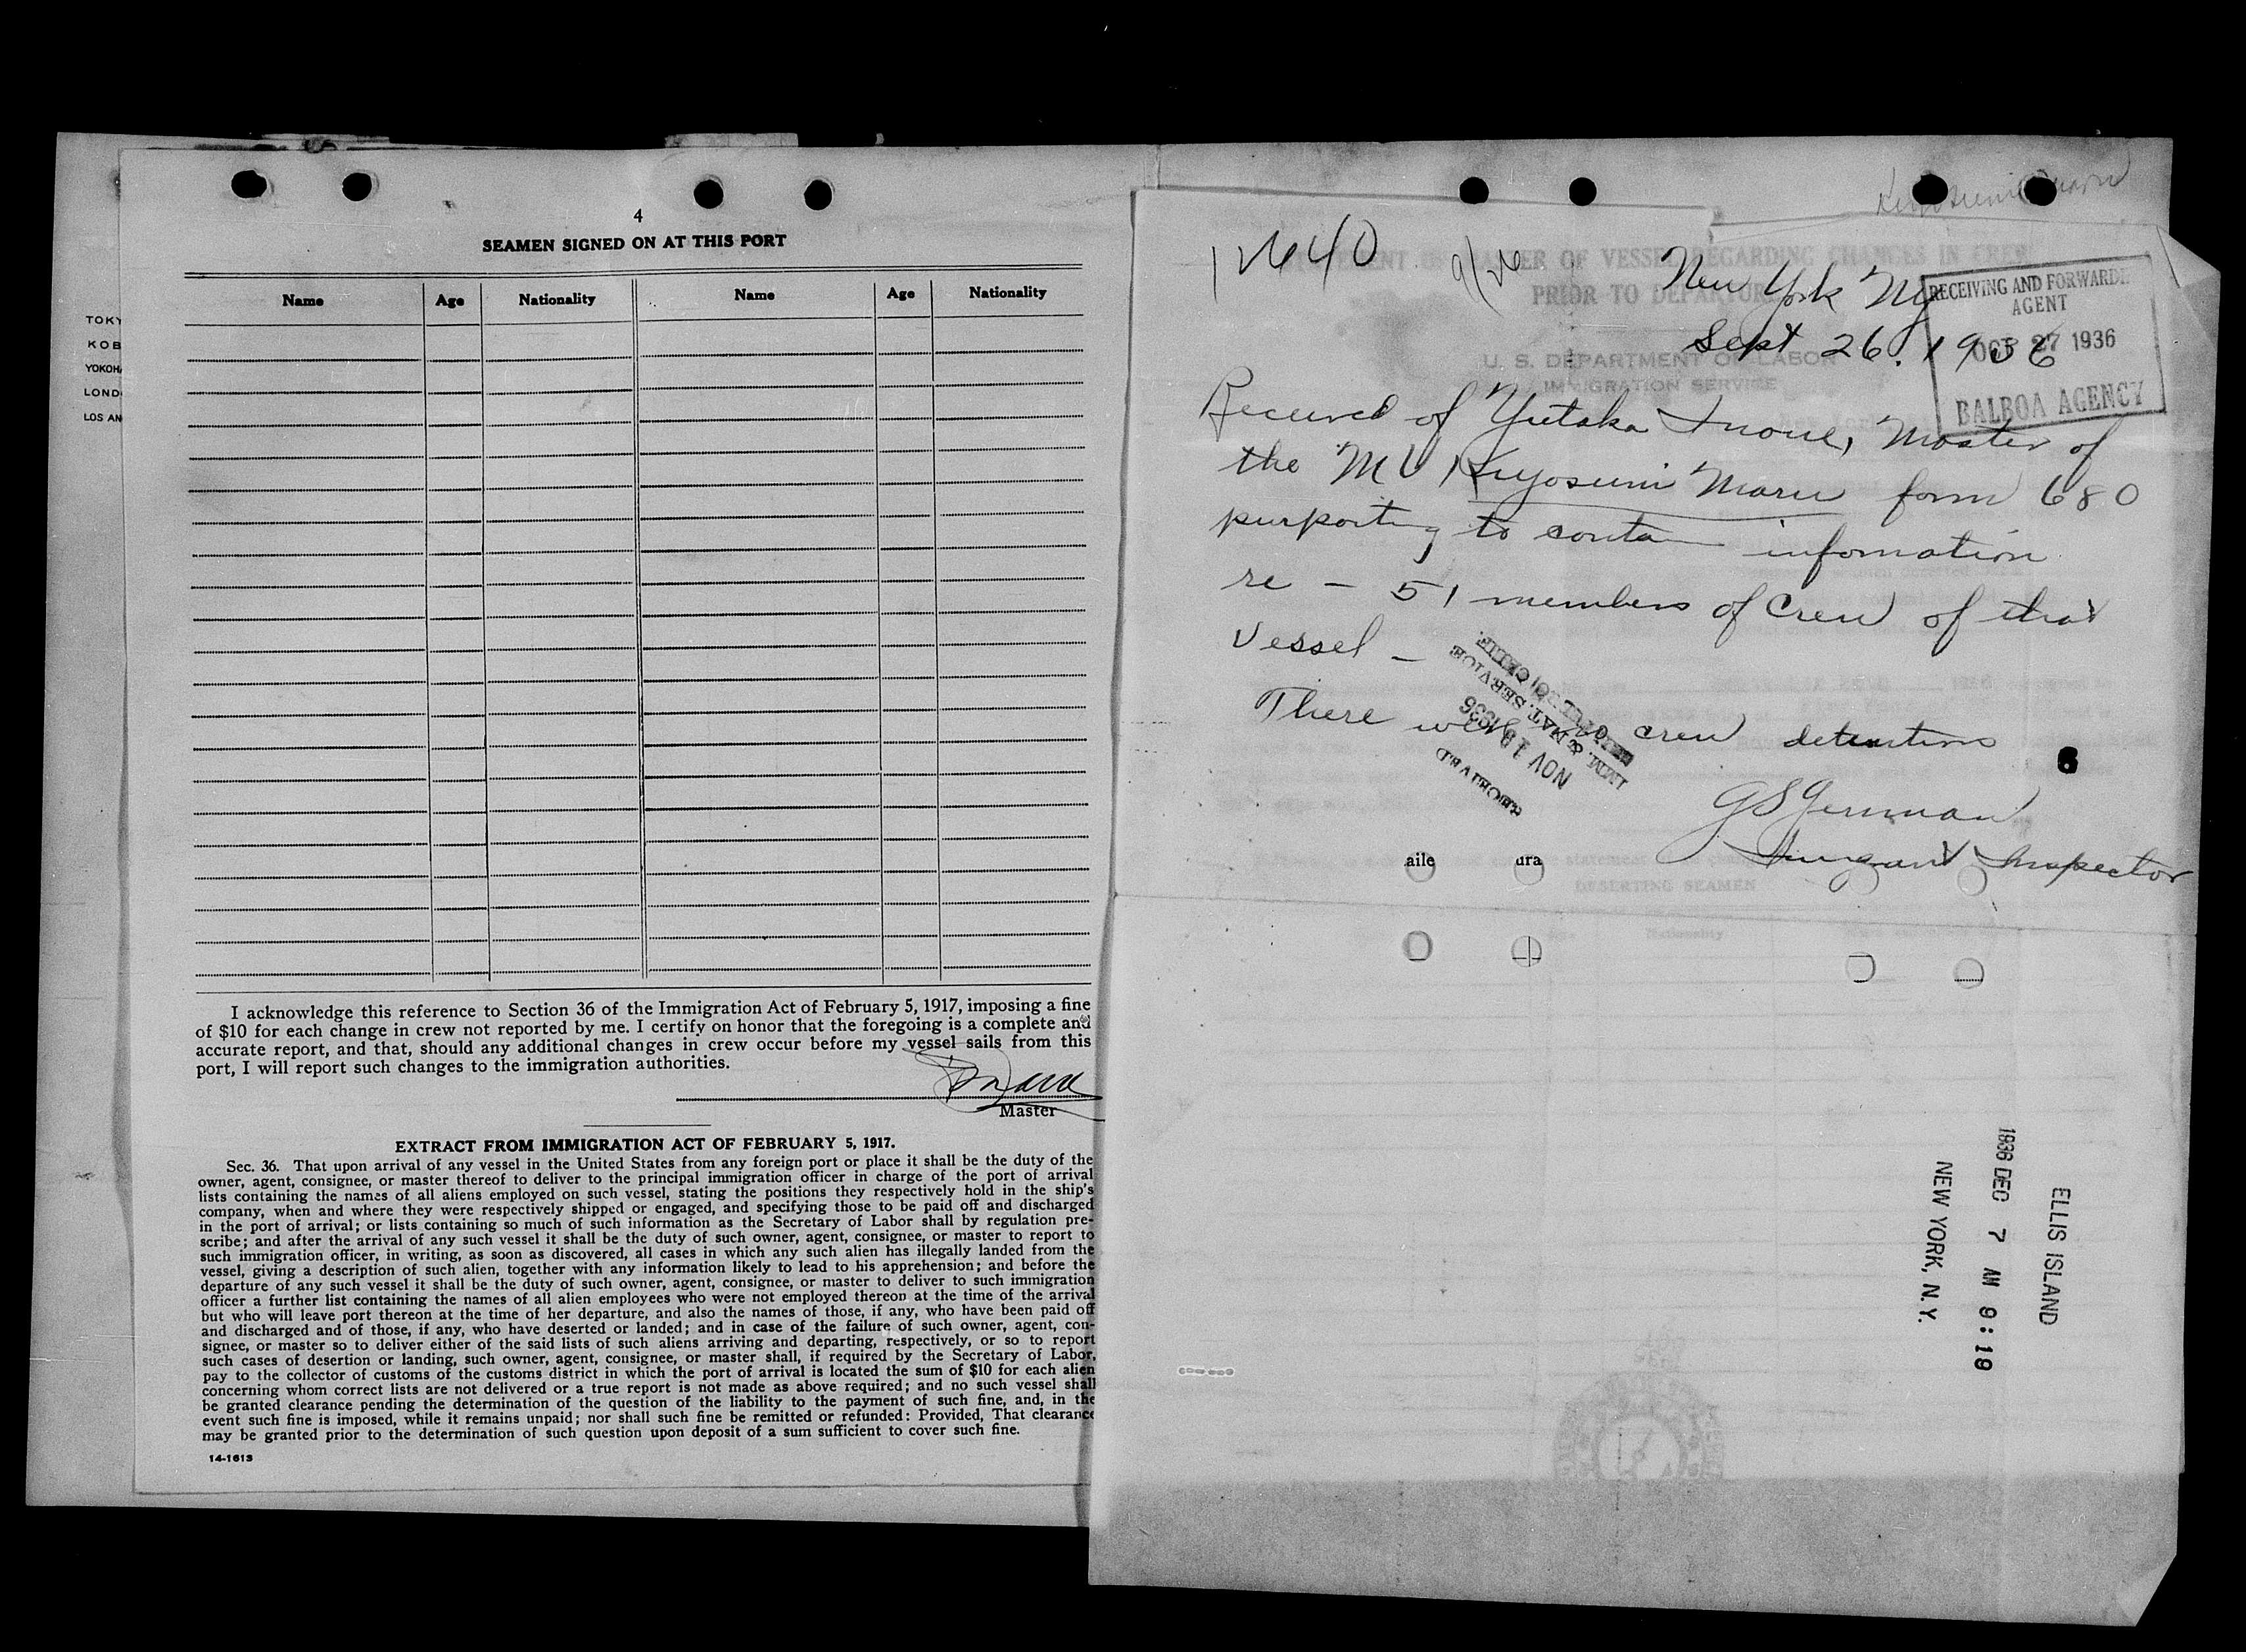 TOKY
KOB
YOKOHA
LOND
LOS AN
4
SEAMEN SIGNED ON AT THIS PORT
Name Age Nationality Name Age Nationality
I acknowledge this reference to Section 36 of the Immigration Act of February 5, 1917, imposing a fine
of $10 for each change in crew not reported by me. I certify on honor that the foregoing is a complete and
accurate report, and that, should any additional changes in crew occur before my vessel sails from this
port, I will report such changes to the immigration authorities.
Master
EXTRACT FROM IMMIGRATION ACT OF FEBRUARY 5, 1917.
Sec. 36. That upon arrival of any vessel in the United States from any foreign port or place it shall be the duty of the
owner, agent, consignee, or master thereof to deliver to the principal immigration officer in charge of the port of arrival
lists containing the names of all aliens employed on such vessel, stating the positions they respectively hold in the ship's
company, when and where they were respectively shipped or engaged, and specifying those to be paid off and discharged
in the port of arrival; or lists containing so much of such information as the Secretary of Labor shall by regulation pre-
scribe; and after the arrival of any such vessel it shall be the duty of such owner, agent, consignee, or master to report to
such immigration officer, in writing, as soon as discovered, all cases in which any such alien has illegally landed from the
vessel, giving a description of such alien, together with any information likely to lead to his apprehension; and before the
departure of any such vessel it shall be the duty of such owner, agent, consignee, or master to deliver to such immigration
officer a further list containing the names of all alien employees who were not employed thereon at the time of the arrival
but who will leave port thereon at the time of her departure, and also the names of those, if any, who have been paid off
and discharged and of those, if any, who have deserted or landed; and in case of the failure of such owner, agent, con-
signee, or master so to deliver either of the said lists of such aliens arriving and departing, respectively, or so to report
such cases of desertion or landing, such owner, agent, consignee, or master shall, if required by the Secretary of Labor,
pay to the collector of customs of the customs district in which the port of arrival is located the sum of $10 for each alien
concerning whom correct lists are not delivered or a true report is not made as above required; and no such vessel shall
be granted clearance pending the determination of the question of the liability to the payment of such fine, and, in the
event such fine is imposed, while it remains unpaid; nor shall such fine be remitted or refunded: Provided, That clearance
may be granted prior to the determination of such question upon deposit of a sum sufficient to cover such fine.
14-1613
9/26
New York NY
Sept 26. 1936
RECEIVING AND FORWARDI
AGENT
27 1936
BALBOA AGENCY
Received of Yutaka Inoue, Master of
the MV Kiyosumi Maru form 680
purporting to contain information
re - 51 members of Crew of that
Vessel -
There were no crew detentions
GS German
Immigrant Inspector
RECEIVED
NOV 1936
IMM. & NAT. SERVICE
aile ura
DESERTING SEAMEN
U. S. DEPARTMENT OF LABOR
IMMIGRATION SERVICE
ELLIS ISLAND
1936 DEC 7 AM 9:19
NEW YORK, N.Y.